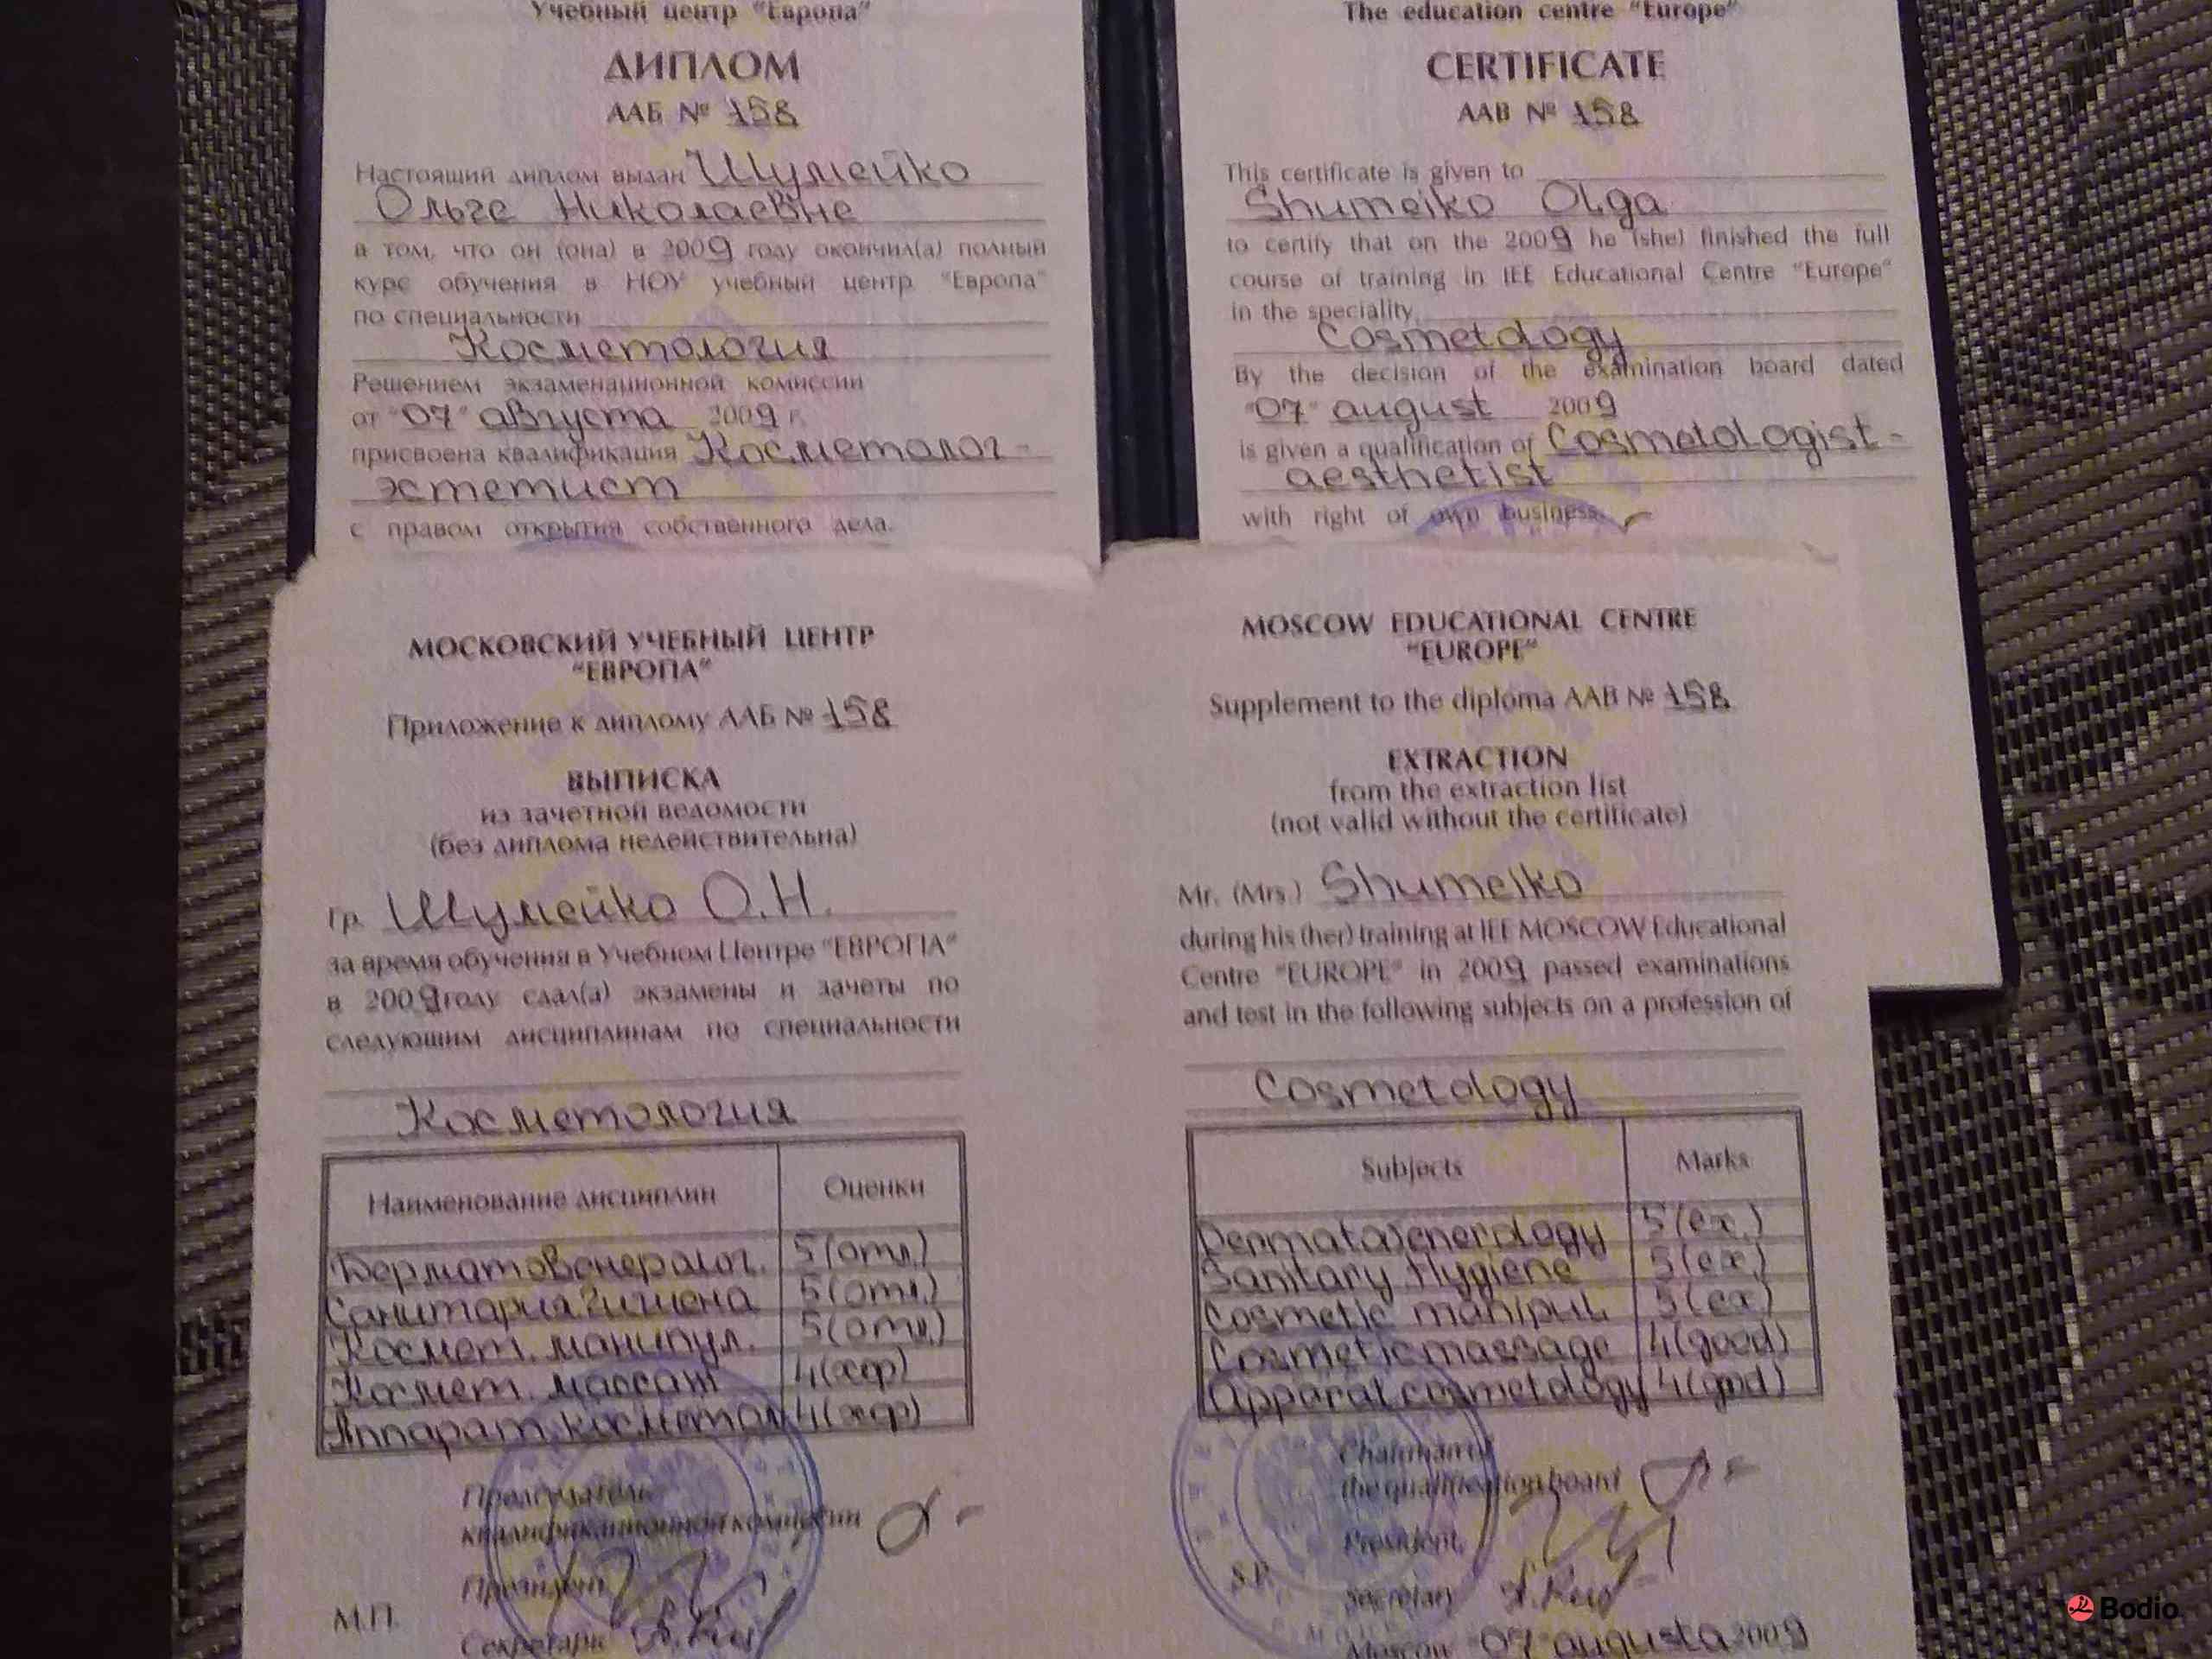 Учебный центр "Европа"
ДИПЛОМ
ААБ № 158
Настоящий диплом выдан Шумейко
Ольге Николаевне
в том, что он (она) в 2009 году окончил(а) полный
курс обучения в НОУ учебный центр "Европа"
по специальности
Косметология
Решением экзаменационной комиссии
от "07" августа 2009 г.
присвоена квалификация Косметолог-
эстетист
с правом открытия собственного дела.
The education centre "Europe"
CERTIFICATE
AAB № 158
This certificate is given to
Shumeiko Olga
to certify that on the 2009 he (she) finished the full
course of training in IEE Educational Centre "Europe"
in the speciality
Cosmetology
By the decision of the examination board dated
"07" august 2009
is given a qualification of Cosmetologist-
aesthetist
with right of own business.
МОСКОВСКИЙ УЧЕБНЫЙ ЦЕНТР
"ЕВРОПА"
Приложение к диплому ААБ № 158
ВЫПИСКА
из зачетной ведомости
(без диплома недействительна)
Гр. Шумейко О.Н.
за время обучения в Учебном Центре "ЕВРОПА"
в 2009 году сдал(а) экзамены и зачеты по
следующим дисциплинам по специальности
Косметология
Наименование дисциплин Оценки
Дерматовенеролог. 5(отл.)
Санитария Гигиена 5(отл.)
Космет. манипул. 5(отл.)
Космет. массаж 4(хор)
Аппарат. косметол 4(хор)
Председатель
квалификационной комиссии
Президент
М.П.
Секретарь
MOSCOW EDUCATIONAL CENTRE
"EUROPE"
Supplement to the diploma AAB № 158
EXTRACTION
from the extraction list
(not valid without the certificate)
Mr. (Mrs.) Shumeiko
during his (her) training at IEE MOSCOW Educational
Centre "EUROPE" in 2009 passed examinations
and test in the following subjects on a profession of
Cosmetology
Subjects Marks
Dermatovenerology 5(ex.)
Sanitary Hygiene 5(ex.)
Cosmetic manipul. 5(ex)
Cosmetic massage 4(good)
Apparat cosmetology 4(good)
Chairman of
the qualification board
President
S.P.
Secretary
Moscow "07" augusta 2009
Bodio